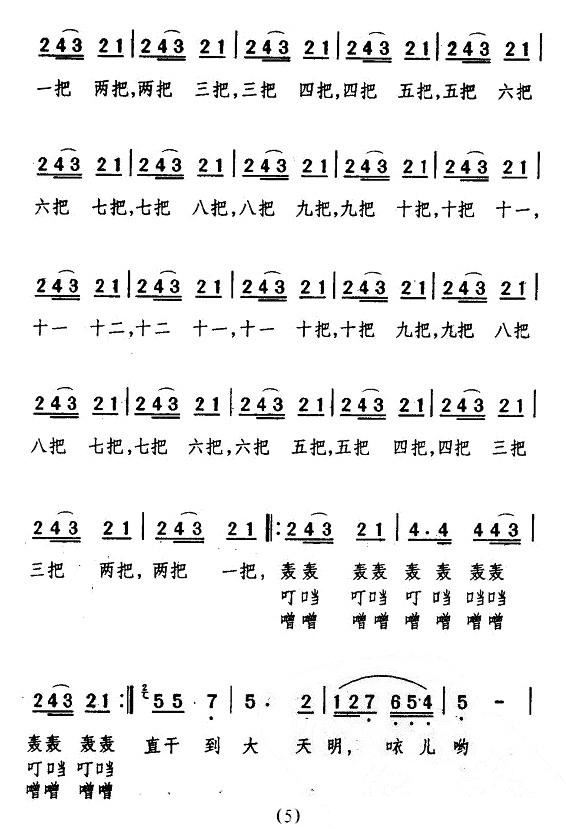 2 4 3 2 1 | 2 4 3 2 1 | 2 4 3 2 1 | 2 4 3 2 1 | 2 4 3 2 1 |
一把 两把,两把 三把,三把 四把,四把 五把,五把 六把
2 4 3 2 1 | 2 4 3 2 1 | 2 4 3 2 1 | 2 4 3 2 1 | 2 4 3 2 1 |
六把 七把,七把 八把,八把 九把,九把 十把,十把 十一,
2 4 3 2 1 | 2 4 3 2 1 | 2 4 3 2 1 | 2 4 3 2 1 | 2 4 3 2 1 |
十一 十二,十二 十一,十一 十把,十把 九把,九把 八把
2 4 3 2 1 | 2 4 3 2 1 | 2 4 3 2 1 | 2 4 3 2 1 | 2 4 3 2 1 |
八把 七把,七把 六把,六把 五把,五把 四把,四把 三把
2 4 3 2 1 | 2 4 3 2 1 ‖: 2 4 3 2 1 | 4 . 4 4 4 3 |
三把 两把,两把 一把,轰轰 轰轰 轰 轰 轰轰
叮当 叮当 叮 当 当当
噌噌 噌噌 噌 噌 噌噌
2 4 3 2 1 :‖ 5 5 7 | 5 . 2 | 1 2 7 6 5 · 4 | 5 - |
轰轰 轰轰 直干 到 大 天明, 咴儿哟
叮当 叮当
噌噌 噌噌
(5)